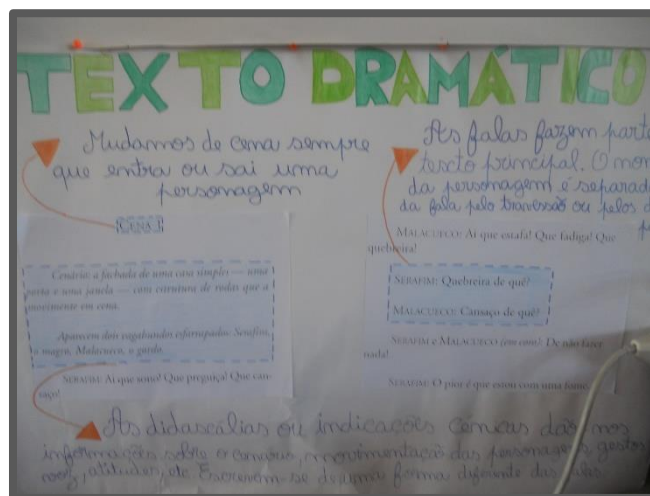 TEXTO DRAMÁTICO
Mudamos de cena sempre
que entra ou sai uma
personagem
CENA I
Cenário: a fachada de uma casa simples — uma
porta e uma janela — com estrutura de rodas que a
movimente em cena.
Aparecem dois vagabundos esfarrapados: Serafim,
o magro, Malacueco, o gordo.
SERAFIM: Ai que sono! Que preguiça! Que can-
saço!
As falas fazem parte
texto principal. O nom
da personagem é separad
da fala pelo travessão ou pelos d
p
MALACUECO: Ai que estafa! Que fadiga! Que
quebreira!
SERAFIM: Quebreira de quê?
MALACUECO: Cansaço de quê?
SERAFIM e MALACUECO (em coro): De não fazer
nada!
SERAFIM: O pior é que estou com uma fome
As didascálias ou indicações cénicas dão-nos
informações sobre o cenário, movimentação das personagens, gestos
voz, atitudes, etc. Escrevem-se de uma forma diferente das falas.